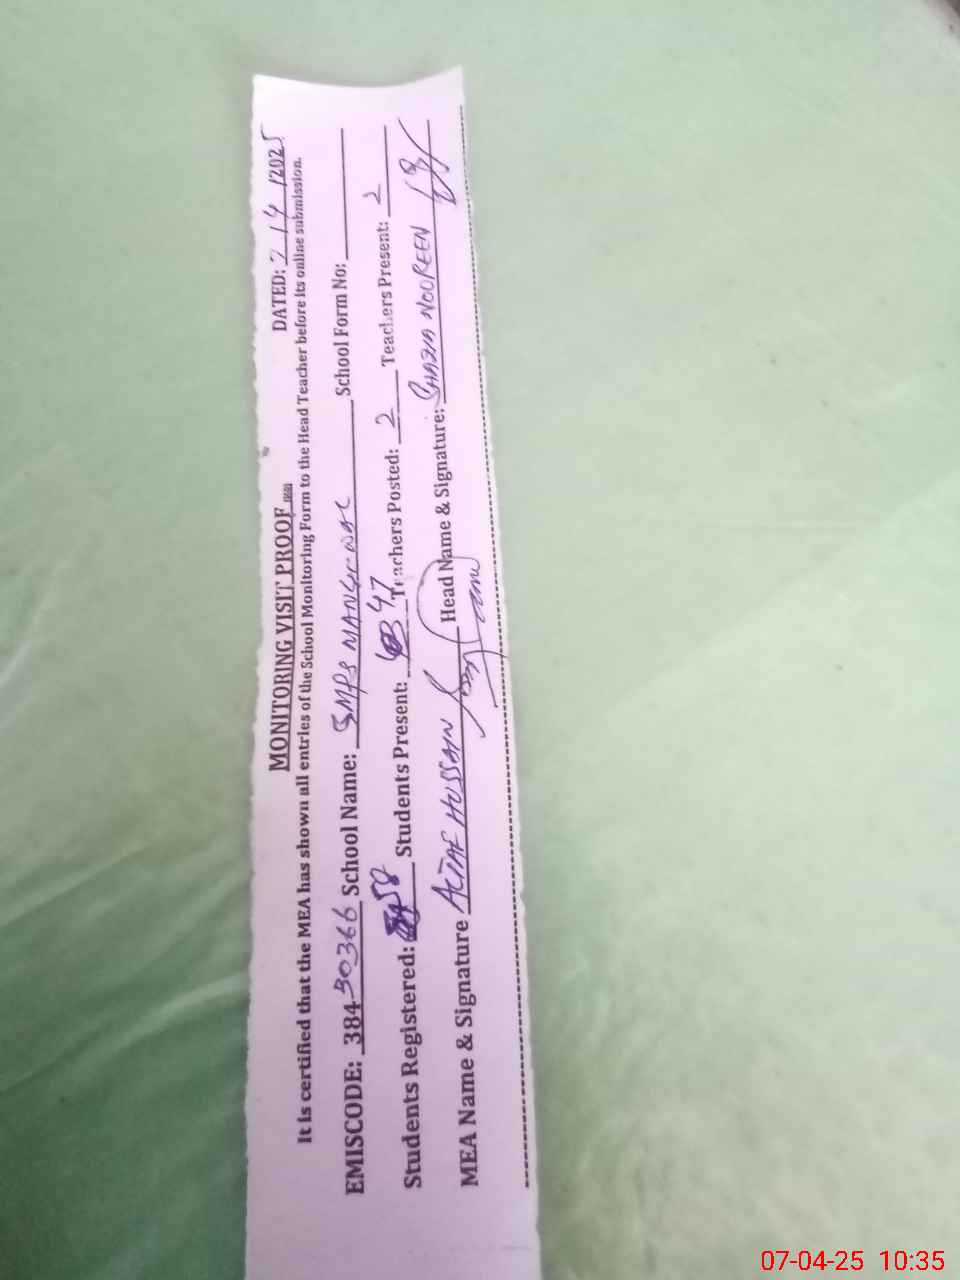 MONITORING VISIT PROOF
DATED: 2 / 4 /2025
It is certified that the MEA has shown all entries of the School Monitoring Form to the Head Teacher before its online submission.
EMISCODE: 38430366 School Name: GMPS School Form No:
Students Registered: 58 Students Present: 47 Teachers Posted: 2 Teachers Present: 2
MEA Name & Signature ALTAF HUSSAIN Head Name & Signature: SHAZIA NOOREEN
07-04-25 10:35